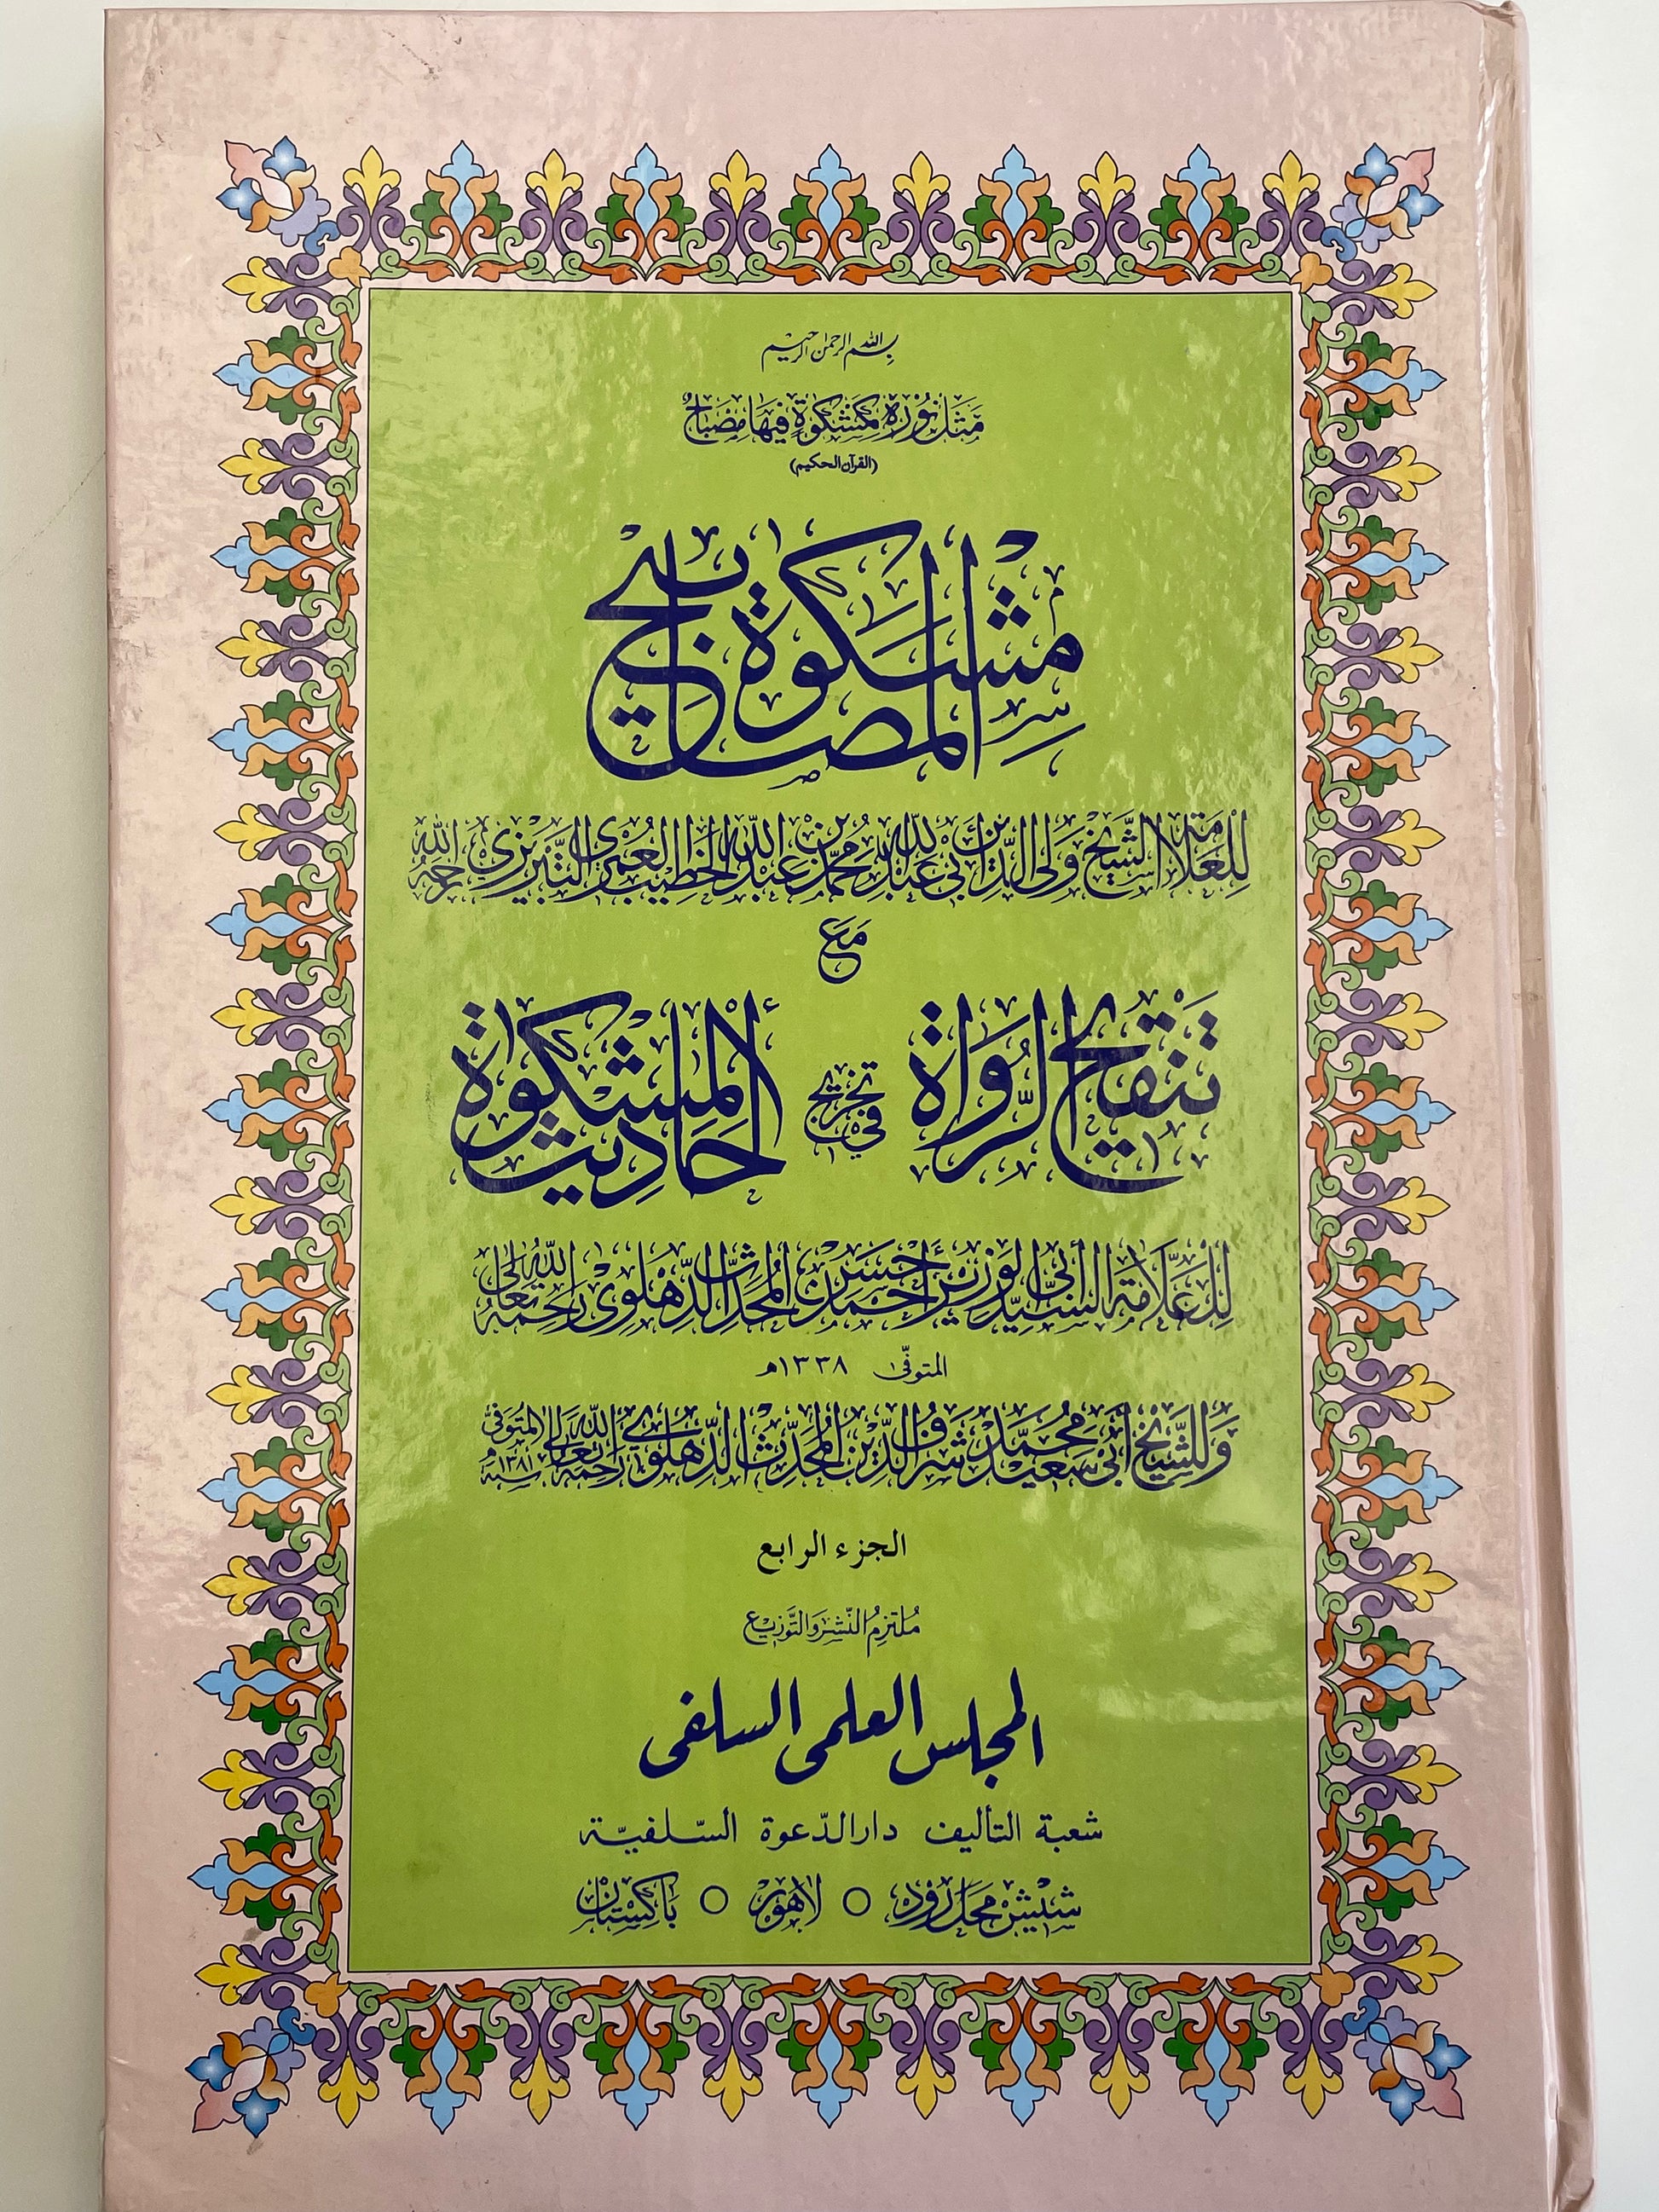 بسم الله الرحمن الرحيم
مَثَلُ نُوْرِهٖ كَمِشْكٰوةٍ فِيْهَا مِصْبَاحٌ
(القرآن الحكيم)
مشكوة المصابيح
للعلامة الشيخ ولي الدين ابي عبد الله محمد بن عبد الله الخطيب العمري التبريزي رحمه الله
مع
تنقيح الرواة في تخريج أحاديث المشكوة
للعلامة السيد أبي الوزير أحمد حسن المحدث الدهلوي رحمه الله تعالى
المتوفى ١٣٣٨هـ
وللشيخ أبي سعيد محمد شرف الدين المحدث الدهلوي رحمه الله تعالى المتوفى سنة ١٣٨١هـ
الجزء الرابع
ملتزم النشر والتوزيع
المجلس العلمى السلفى
شعبة التأليف دار الدّعوة السّلفيّة
شيش محل رود ○ لاهور ○ باكستان